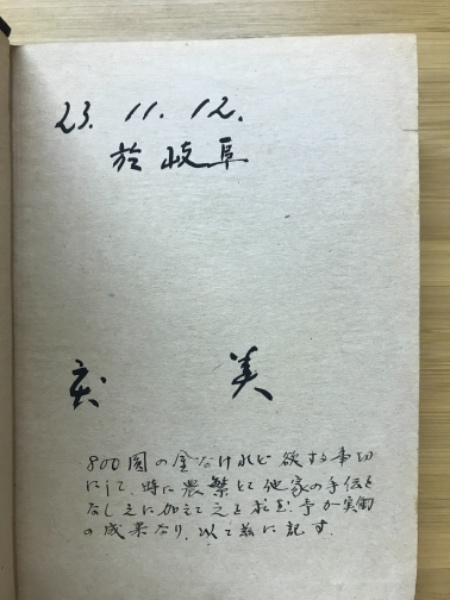 23. 11. 12.
於岐阜
美
800圓の金なけれど欲する事切
にして、時に農繁とて他家の手伝を
なし之に加えて之を求む、予が実働
の成果なり、以て茲に記す.